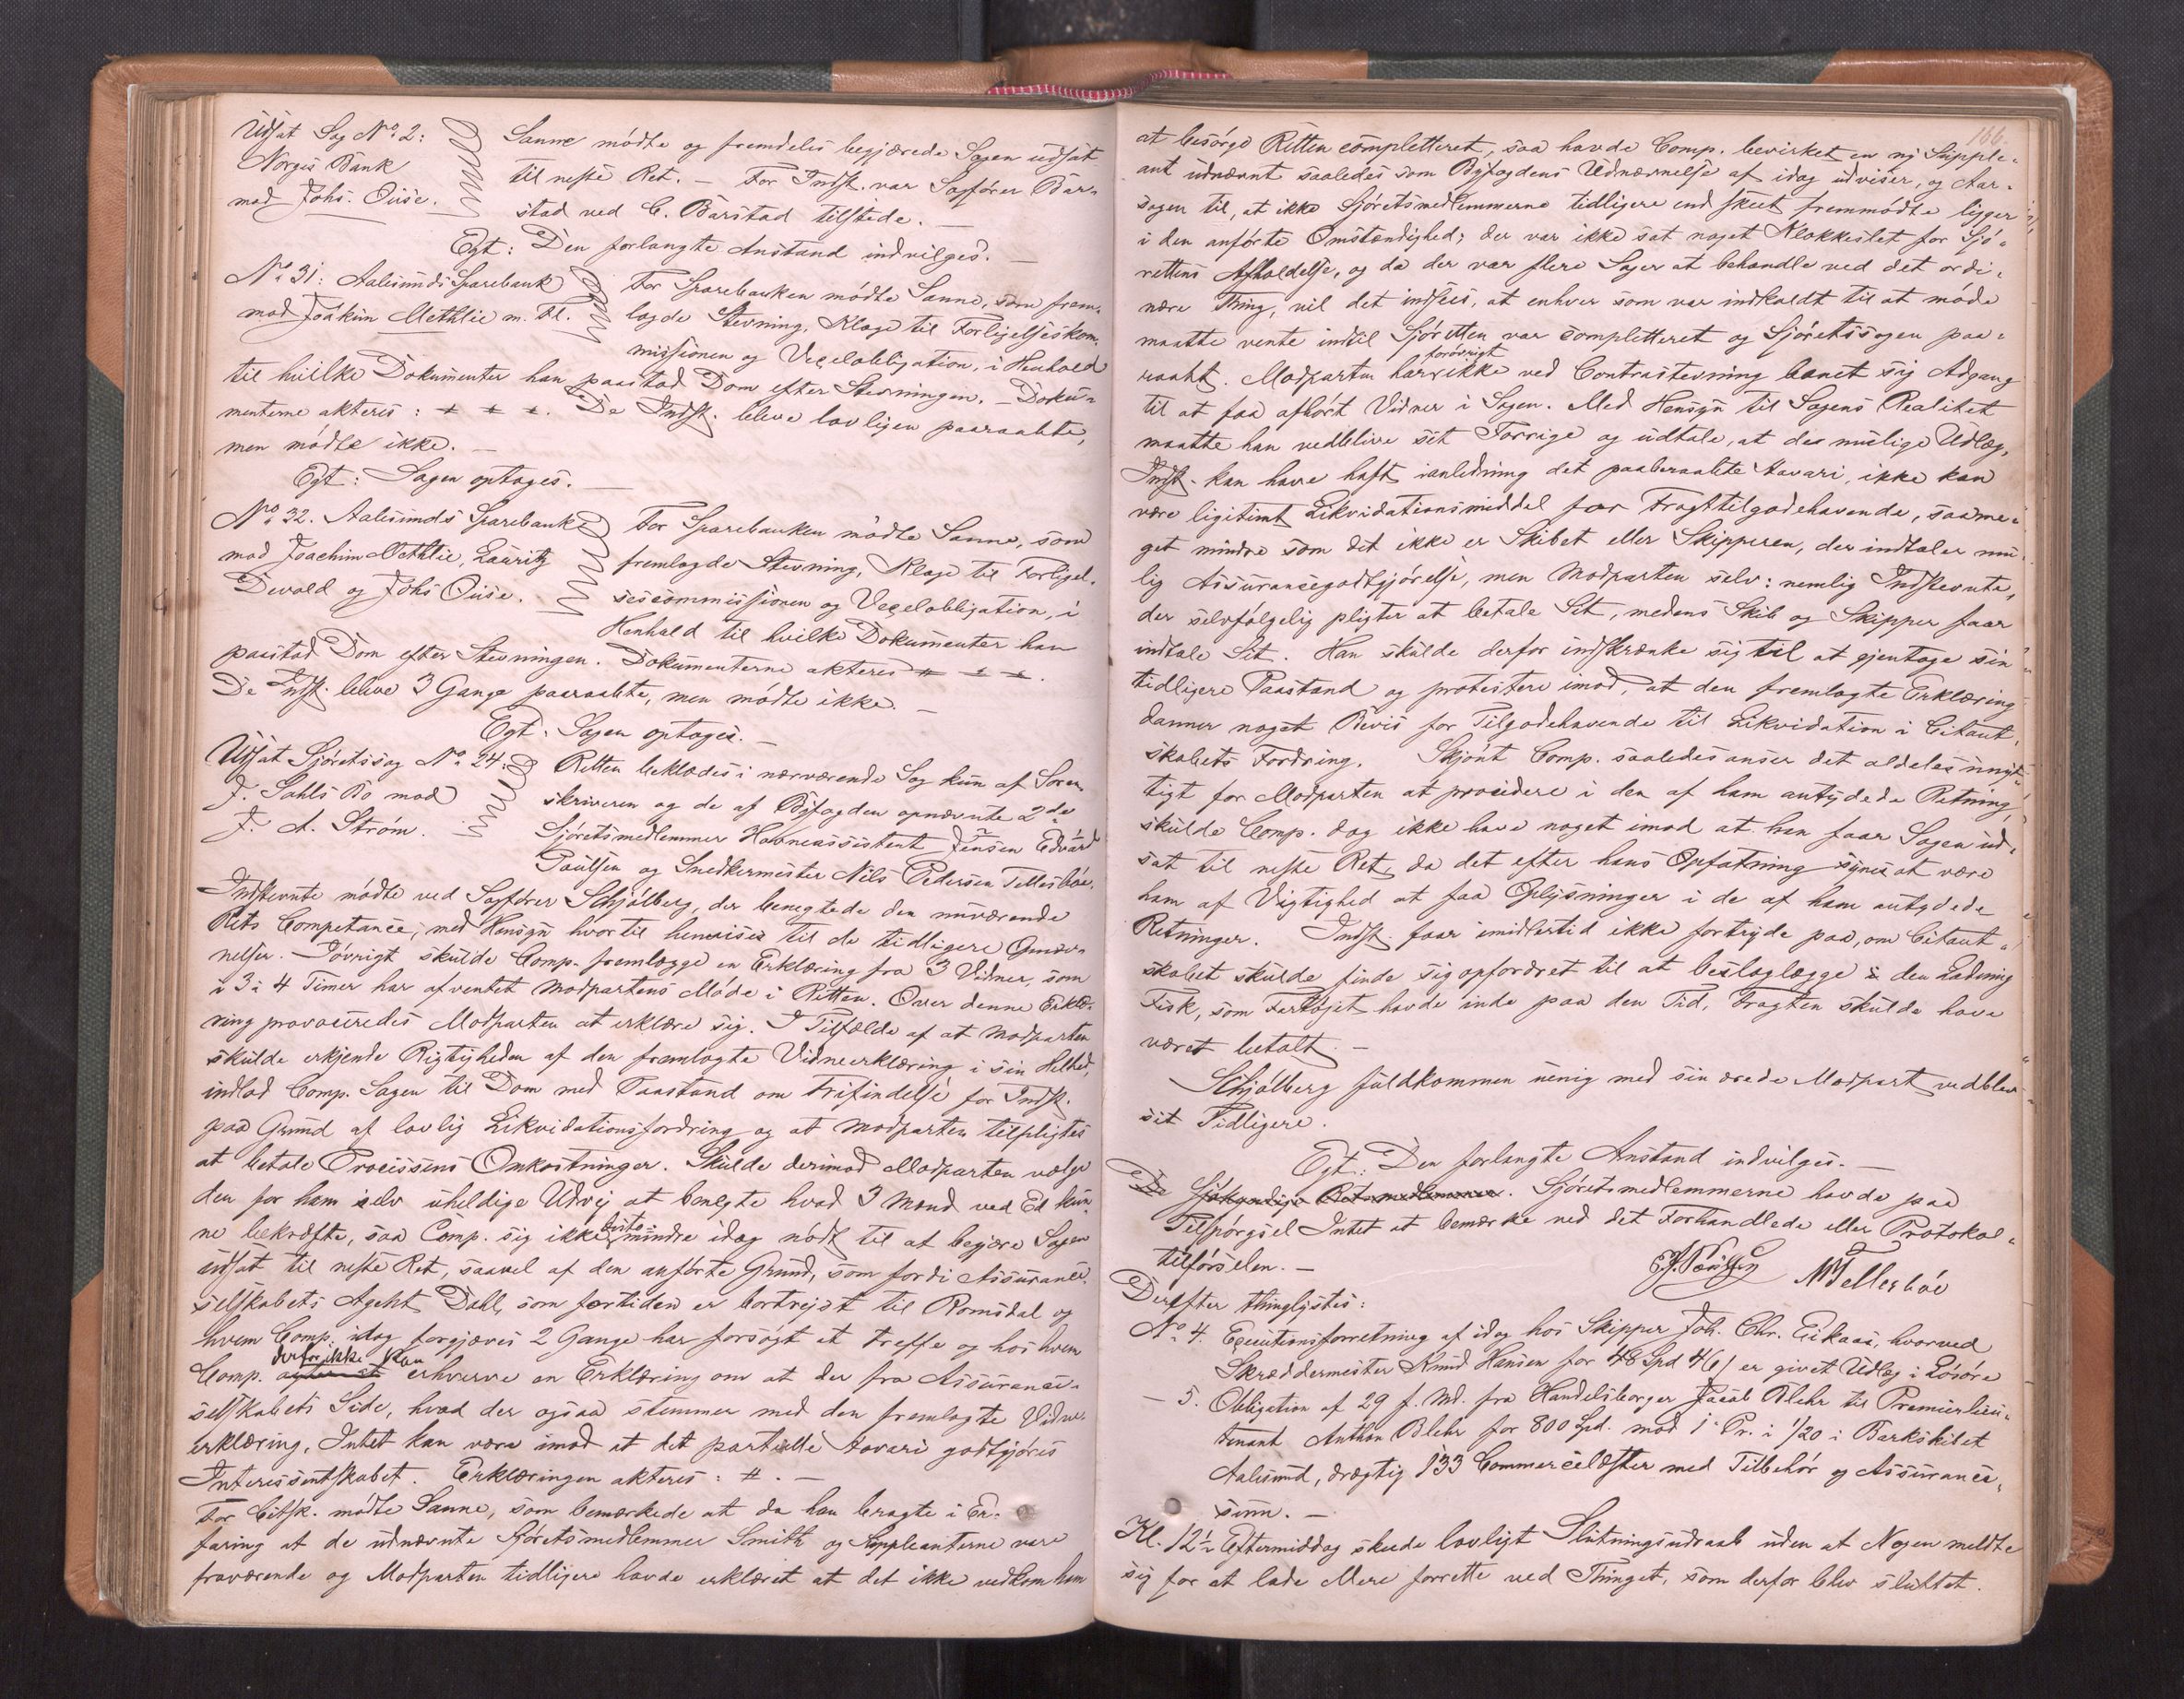 Udsat Sag No. 2:
Norges Bank
mod Johs. Ouse.
Sanne mödte og fremdeles begjærede Sagen udsat
til neste Ret. — For Indst. var Sagförer Bar-
stad ved C. Barstad tilstede. —
Egt: Den forlangte Anstand indvilges. —
No. 31: Aalesunds Sparebank
mod Joakim Methlie m. Fl.
For Sparebanken mödte Sanne, som frem-
lagde Stevning, Klage til Forligelseskom-
missionen og Vexelobligation, i Henhold
til hvilke Dokumenter han paastod Dom efter Stevningen. — Doku-
menterne akteres: # # #. De Indst. bleve lovligen paaraabte,
men mödte ikke. —
Egt: Sagen optages. —
No. 32. Aalesunds Sparebank
mod Joachim Methlie, Lauritz
Devold og Johs Ouse.
For Sparebanken mödte Sanne, som
fremlagde Stevning, Klage til Forligel-
sescommissionen og Vexelobligation, i
Henhold til hvilke Dokumenter han
paastod Dom efter Stevningen. Dokumenterne akteres # # #.
De Indst. bleve 3 Gange paaraabte, men mödte ikke. —
Egt: Sagen optages. —
Udsat Sjöretssag No. 24:
J. Sahls Bo mod
J. A. Ström.
Retten beklædes i nærværende Sag kun af Soren-
skriveren og de af Byfogden opnævnte 2de
Sjöretsmedlemmer Havneassistent Jensen Edvard
Paulsen og Snedkermester Nils Pedersen Tellesböe.
Indstevnte mödte ved Sagförer Schjölberg, der benegtede den nuværende
Rets Competance, med Hensyn hvortil henvises til de tidligere
nelser. Iövrigt skulde Comp. fremlægge en Erklæring fra 3 Vidner, som
i 3 à 4 Timer har afventet Modpartens Möde i Retten. Over denne Erklæ-
ring provoceredes Modparten at erklære sig. I Tilfælde af at Modparten
skulde erkjende Rigtigheden af den fremlagte Vidneerklæring i sin Helhed,
indlod Comp. Sagen til Dom med Paastand om Frifindelse for Indst.
paa Grund af lovlig Likvidationsfordring og at Modparten tilpligtes
at betale Processens Omkostninger. Skulde derimod Modparten vælge
den for ham selv uheldige Udvej at benegte hvad 3 Mand ved Ed kun-
ne bekræfte, saa Comp. sig ikke desto mindre idag nödt til at begjære Sagen
udsat til neste Ret, saavel af den anförte Grund, som fordi Assurance-
selskabets Agent Dahl, som fortiden er bortrejst til Romsdal og
hvem Comp. idag forgjæves 2 Gange har forsögt at treffe og hos hvem
Comp. derfor ikke kan erhverve en Erklæring om at der fra Assurance-
selskabets Side, hvad der ogsaa stemmer med den fremlagte Vidne-
erklæring, Intet kan være imod at det partielle Havari godtgjöres
Interessentskabet. Erklæringen akteres: #. —
For Citsk. mödte Sanne, som bemærkede at da han bragte i Er-
faring at de udnævnte Sjöretsmedlemmer Smith og Suppleanterne vare
fraværende og Modparten tidligere havde erklæret at det ikke vedkom ham
166.
at besörge Retten completteret, saa havde Comp. bevirket en ny Supple-
ant udnævnt saaledes som Byfogdens Udnævnelse af idag udviser, og Aar-
sagen til, at ikke Sjöretsmedlemmerne tidligere end skeet fremmödte ligger
i den anförte Omstændighed; der var ikke sat noget Klokkeslet for Sjö-
rettens Afholdelse, og da der var flere Sager at behandle ved det ordi-
nære Thing, vil det indsees, at enhver som var indkaldt til at möde
maatte vente indtil Sjöretten var completteret og Sjöretssagen paa-
raabt. Modparten har forövrigt ikke ved Contrastevning banet sig Adgang
til at faa afhört Vidner i Sagen. Med Hensyn til Sagens Realitet
maatte han vedblive sit Forrige og udtale, at de mulige Udlæg,
Indst. kan have haft i anledning det paaberaabte Havari, ikke kan
være ligitimt Likvidationsmiddel for Fragttilgodehavende, saame-
get mindre som det ikke er Skibet eller Skipperen, der indtaler mu-
lig Assurancegodtgjörelse, men Modparten selv: nemlig Indstevnte,
der selvfölgelig pligter at betale Sit, medens Skib og Skipper faar
indtale Sit. Han skulde derfor indskrænke sig til at gjentage sin
tidligere Paastand og protestere imod, at den fremlagte Erklæring
danner noget Bevis for Tilgodehavende til Likvidation i Citant-
skabets Fordring. Skjönt Comp. saaledes anser det aldeles unyt-
tigt for Modparten at procedere i den af ham antydede Retning,
skulde Comp. dog ikke have noget imod at han faar Sagen ud-
sat til neste Ret, da det efter hans Opfatning synes at være
ham af Vigtighed at faa Oplysninger i de af ham antydede
Retninger. Indst. faar imidlertid ikke fortryde paa, om Citant-
skabet skulde finde sig opfordret til at beslaglægge den Ladning
Fisk, som Fartöjet havde inde paa den Tid, Fragten skulde have
været betalt. —
Schjölberg fuldkommen uenig med sin ærede Modpart vedblev
sit Tidligere.
Egt: Den forlangte Anstand indvilges. —
De Sjökyndige Retsmedlemmer. Sjöretsmedlemmerne havde paa
Tilspörgsel Intet at bemærke ved det Forhandlede eller Protokol-
tilförselen. —
E. J. Paulsen NPTellesböe
Derefter thinglystes:
No. 4. Executionsforretning af idag hos Skipper Joh. Chr. Eikaas, hvorved
Skræddermester Knud Hansen for 48 Spd 4 (6) er givet Udlæg i Lösöre
— 5. Obligation af 29 f. Md. fra Handelsborger Jacob Blehr til Premierlieu-
tenant Anthon Blehr for 800 Spd. mod 1. Pr. i 1/20 i Barkskibet
Aalesund, drægtig 133 Commercelæster med Tilbehör og Assurance-
sum. —
Kl. 12½ Eftermiddag skede lovligt Slutningsudraab uden at Nogen meldte
sig for at lade Mere forrette ved Thinget, som derfor blev sluttet.